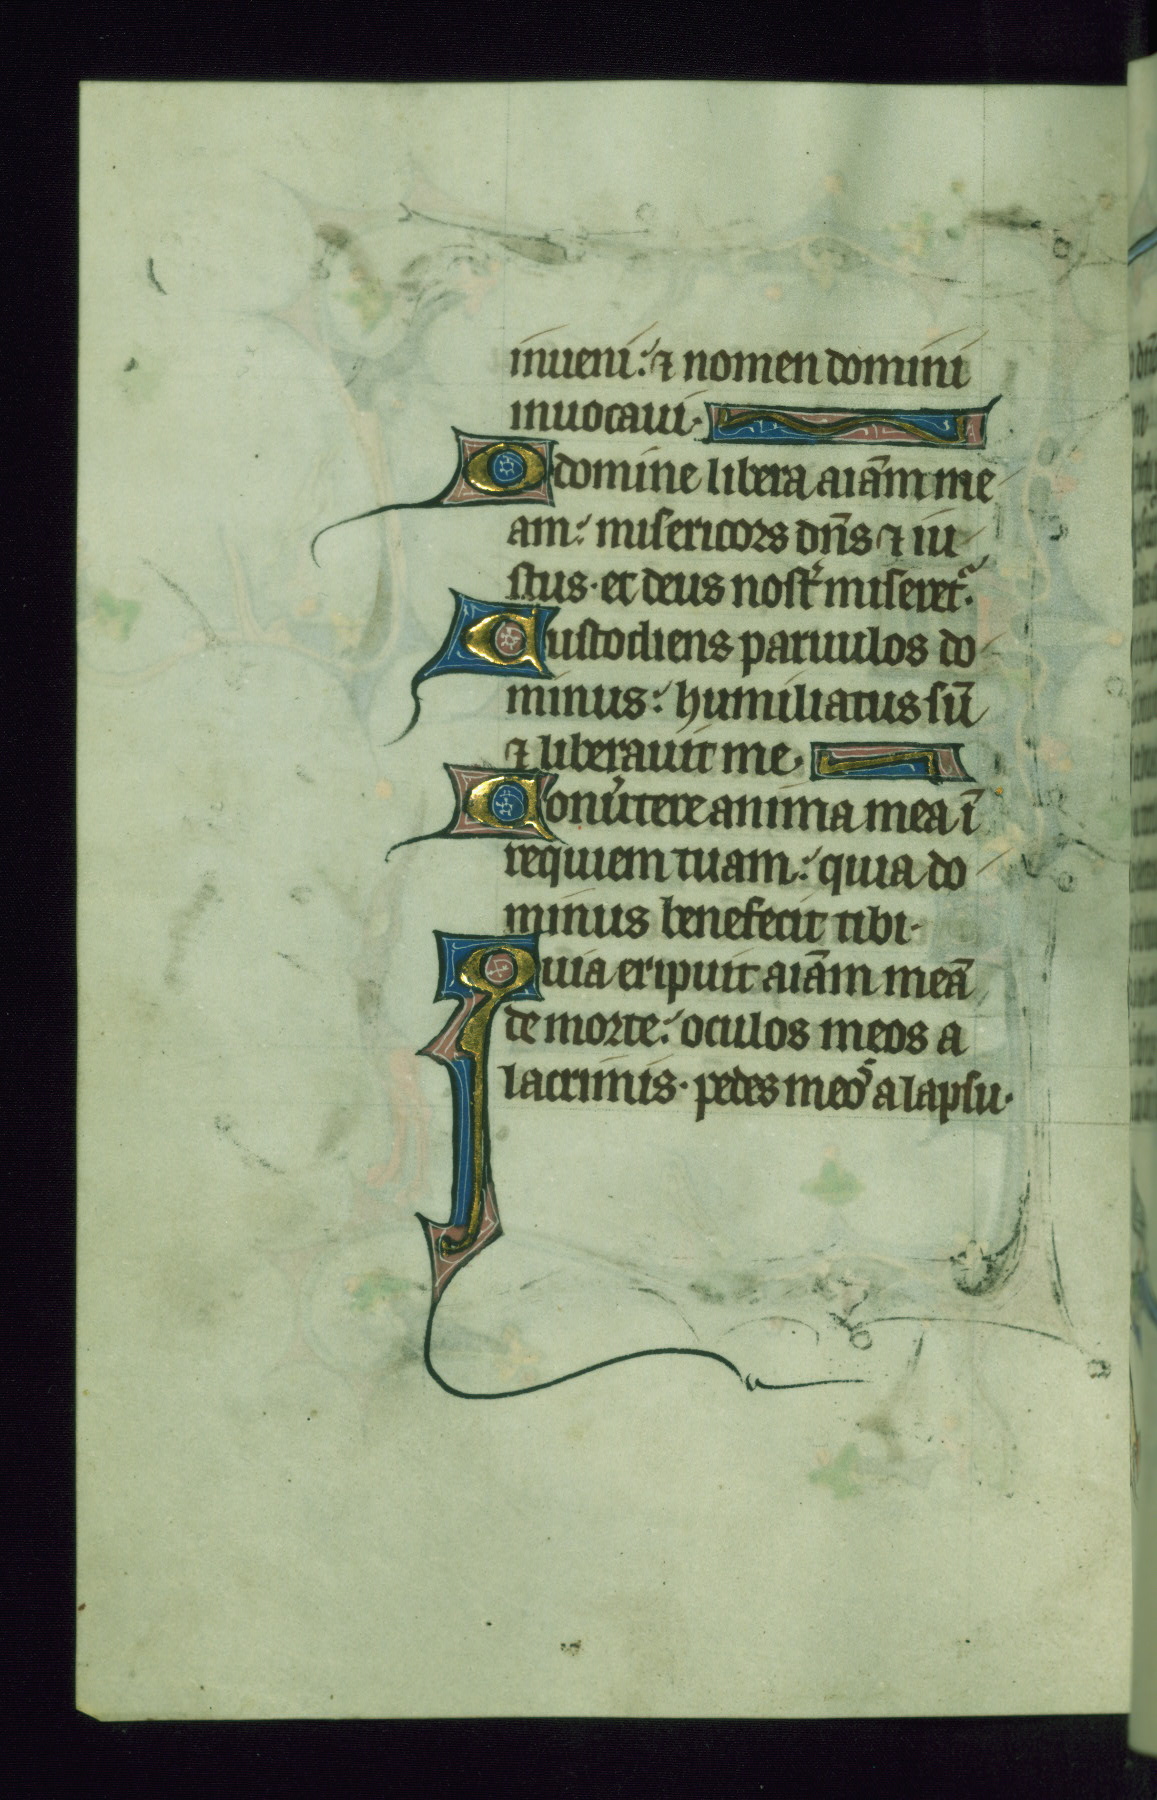 inueni: ⁊ nomen domini
inuocaui·
O domine libera aīam me
am: misericors dn̄s ⁊ iu
stus· et deus nostr̉ miseret᷑·
Custodiens paruulos do
minus: humiliatus sū
⁊ liberauit me·
Conu̓tere anima mea ī
requiem tuam: quia do
minus benefecit tibi·
Quia eripuit aīam meā
de morte: oculos meos a
lacrimis· pedes meoˢ a lapsu·